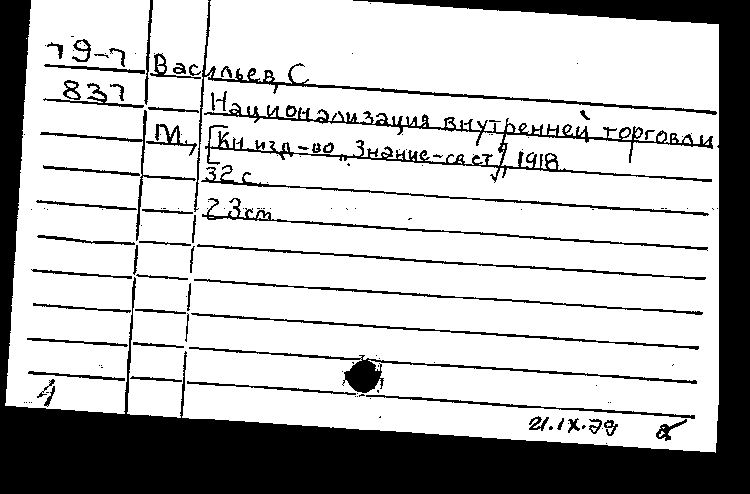 79-7 Васильев, С
837 Национализация внутренней торговли.
М., [Кн изд-во „Знание-свет"], 1918.
32 с.
23 cm.
21.IX.79